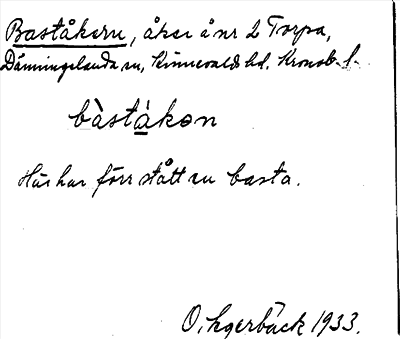 Baståkern, åker å nr 2 Torpa,
Dänningelanda sn, Kinnevalds hd. Kronob. l.
bàståkən
Här har förr stått en basta.
O. Agerbäck 1933.